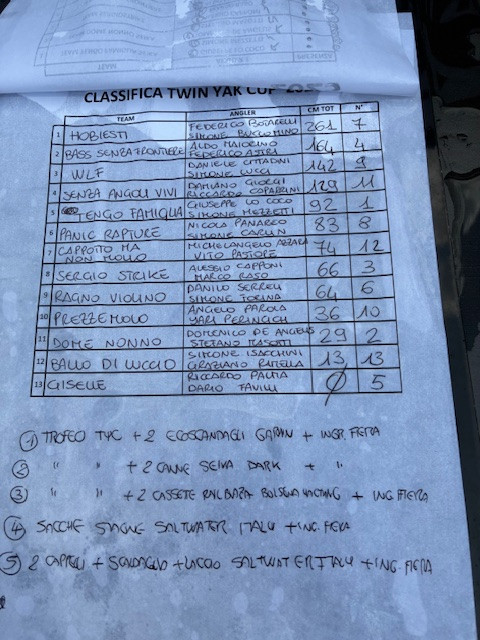 CLASSIFICA TWIN YAK CUP
TEAM ANGLER CM TOT N°
1 HOBIESTI FEDERICO BOTARELLI 261 7
SIMONE BUCCOMINO
2 BASS SENZA FRONTIERE ALDO MAIORINO 164 4
FEDERICO
3 WLF DANIELE CITTADINI 142 9
SIMONE LUCCI
4 SENZA ANGOLI VIVI DAMIANO GIORGI 129 11
RICCARDO
5 TENGO FAMIGLIA GIUSEPPE LO COCO 92 1
SIMONE MEZZETTI
6 PANIC RAPTURE NICOLA PANAREO 83 8
SIMONE CARLIN
7 CAPPOTTO MA MICHELANGELO AZZARA 74 12
NON MOLLO VITO PASTORE
8 SERGIO STRIKE ALESSIO CAPPONI 66 3
MARCO RASO
9 RAGNO VIOLINO DANILO SERRELI 64 6
SIMONE TORINA
10 PREZZEMOLO ANGELO PAROLA 36 10
YARI
11 DOME NONNO DOMENICO DE ANGELIS 29 2
STEFANO MASOTTI
12 BALLO DI LUCCIO SIMONE ISACCHINI 13 13
GRAZIANO
13 GISELLE RICCARDO PALMA Ø 5
DARIO FAVILLI
1 TROFEO TYC + 2 ECOSCANDAGLI GARMIN + INGR. FIERA
2 " " + 2 CANNE SEIKA DARK + "
3 " " + 2 CASSETE RAILBAZA BOLSENA YACHTING + ING. FIERA
4 SACCHE STAGNE SALTWATER ITALY + ING. FIERA
5 2 CAPPELLI + + LACCIO SALTWATER ITALY + ING. FIERA